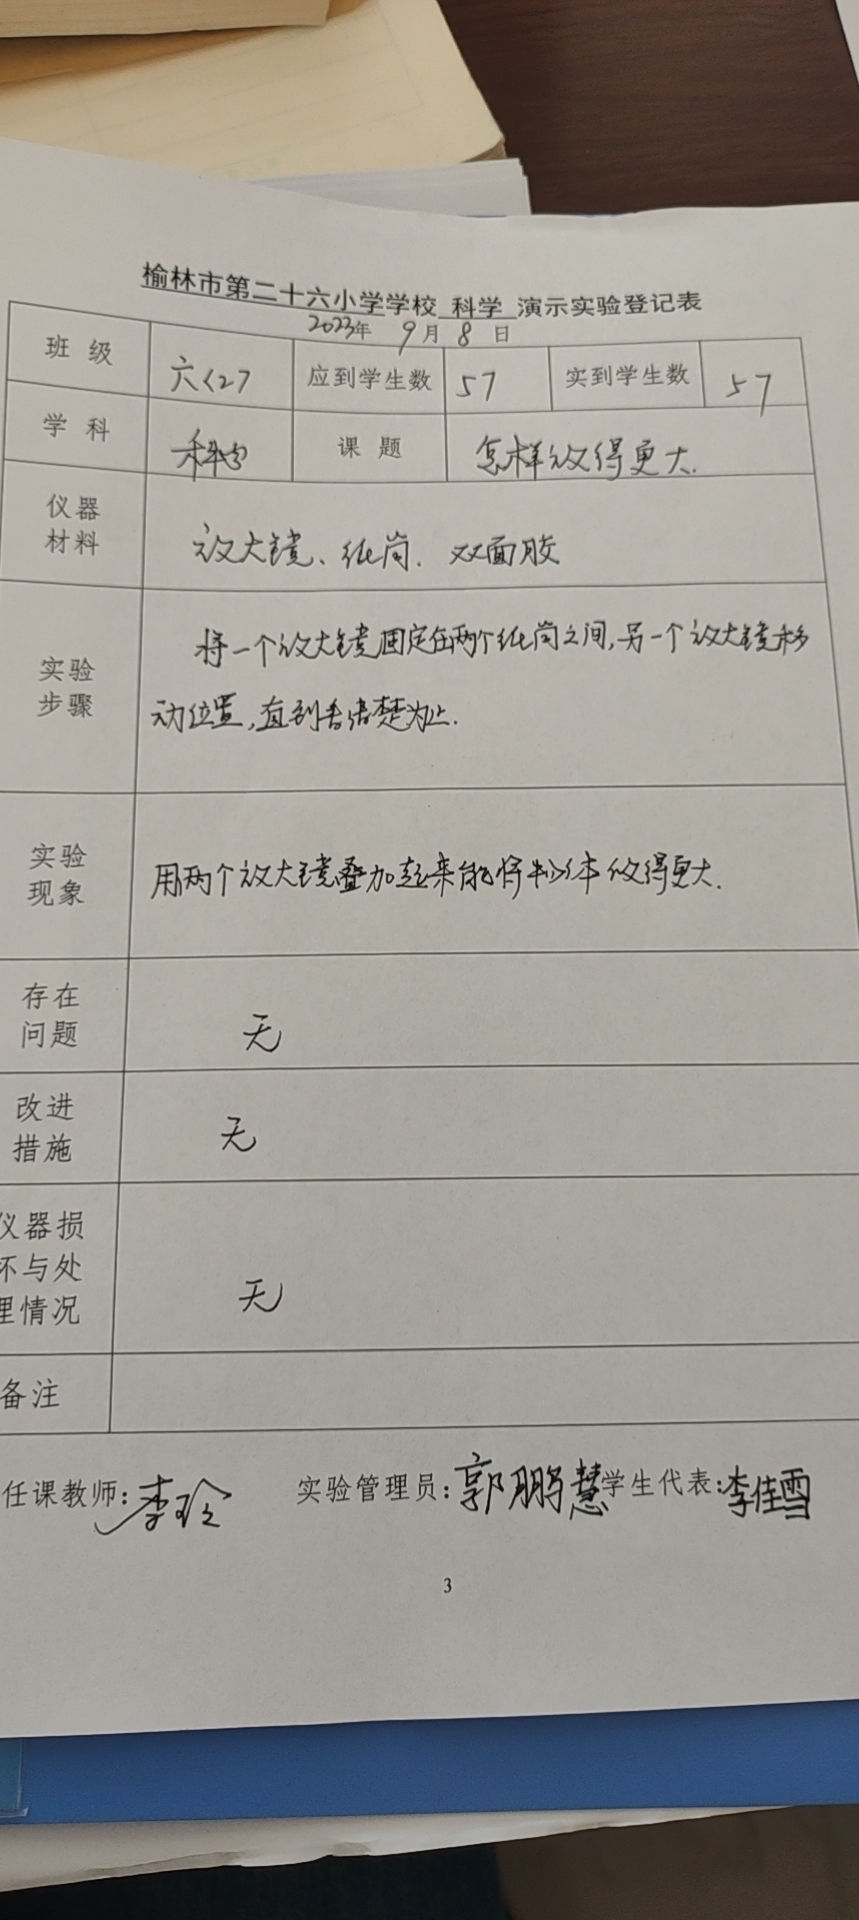 榆林市第二十六小学学校 科学 演示实验登记表
2023年 9月 8 日
班 级 六<2> 应到学生数 57 实到学生数 57
学 科 科学 课 题 怎样放得更大.
仪器
材料
放大镜、纸筒. 双面胶
实验
步骤
将一个放大镜固定在两个纸筒之间,另一个放大镜移
动位置,直到看清楚为止.
实验
现象
用两个放大镜叠加起来能将物体放得更大.
存在
问题
无
改进
措施
无
仪器损
坏与处
理情况
无
备注
任课教师:李玲 实验管理员:郭鹏慧 学生代表:李佳雪
3